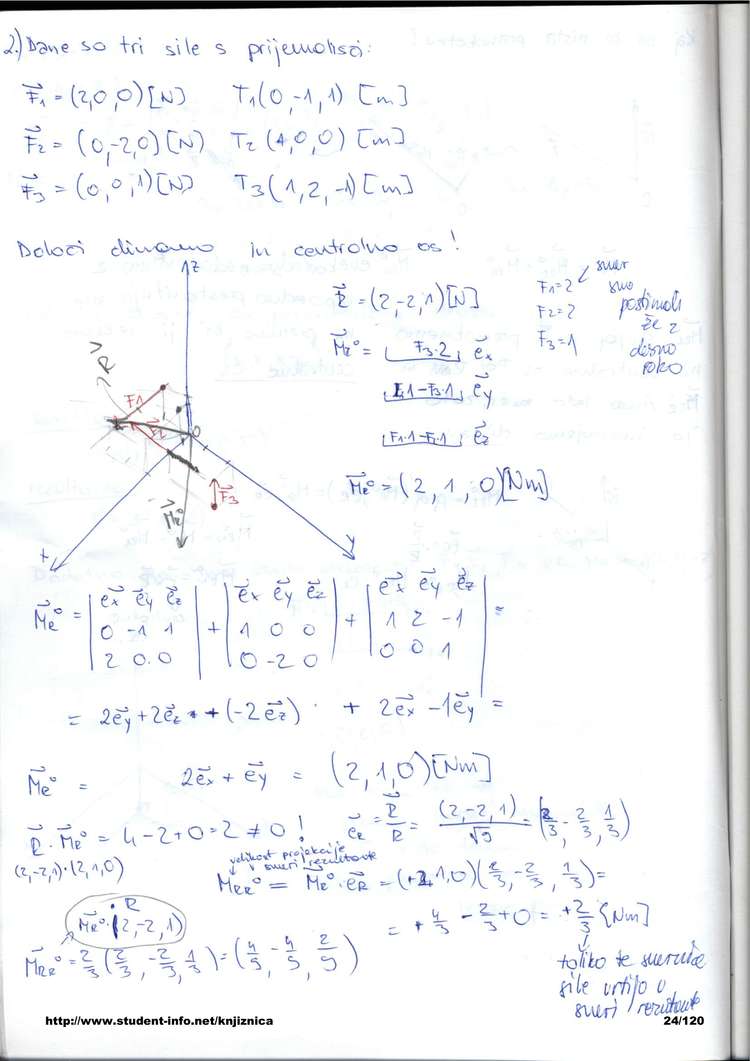 2.) Dane so tri sile s prijemališči:
F⃗1 = (2,0,0) [N] T1(0,-1,1) [m]
F⃗2 = (0,-2,0) [N] T2(1,0,0) [m]
F⃗3 = (0,0,1) [N] T3(1,2,-1) [m]
Določi dinamo in centralno os!
R⃗ = (2,-2,1) [N]
F1=2
F2=2
F3=1
smer
smo
postimali
že z
desno
roko
M⃗R⁰ = F3·2 e⃗x
F1·1-F3·1 e⃗y
F1·1-F2·1 e⃗z
M⃗R⁰ = (2, 1, 0) [Nm]
z
R
F1
F2
0
F3
M⃗R⁰
x
y
M⃗R⁰ = | e⃗x e⃗y e⃗z | + | e⃗x e⃗y e⃗z | + | e⃗x e⃗y e⃗z | =
| 0 -1 1 | | 1 0 0 | | 1 2 -1 |
| 2 0 0 | | 0 -2 0 | | 0 0 1 |
= 2e⃗y + 2e⃗z + (-2e⃗z) + 2e⃗x - 1e⃗y =
M⃗R⁰ = 2e⃗x + e⃗y = (2,1,0) [Nm]
R⃗ · M⃗R⁰ = 4-2+0=2 ≠ 0! e⃗R = R⃗/R = (2,-2,1)/√9 = (2/3, -2/3, 1/3)
(2,-2,1)·(2,1,0)
velikost projekcije
v smeri rezultante
MRR⁰ = M⃗R⁰ · e⃗R = (+2,1,0)(2/3, -2/3, 1/3) =
= +4/3 - 2/3 + 0 = +2/3 [Nm]
· R
M⃗R⁰·(2,-2,1)
M⃗RR⁰ = 2/3 (2/3, -2/3, 1/3) = (4/9, -4/9, 2/9)
toliko te
sile vrtijo v
smeri rezultante
http://www.student-info.net/knjiznica
24/120